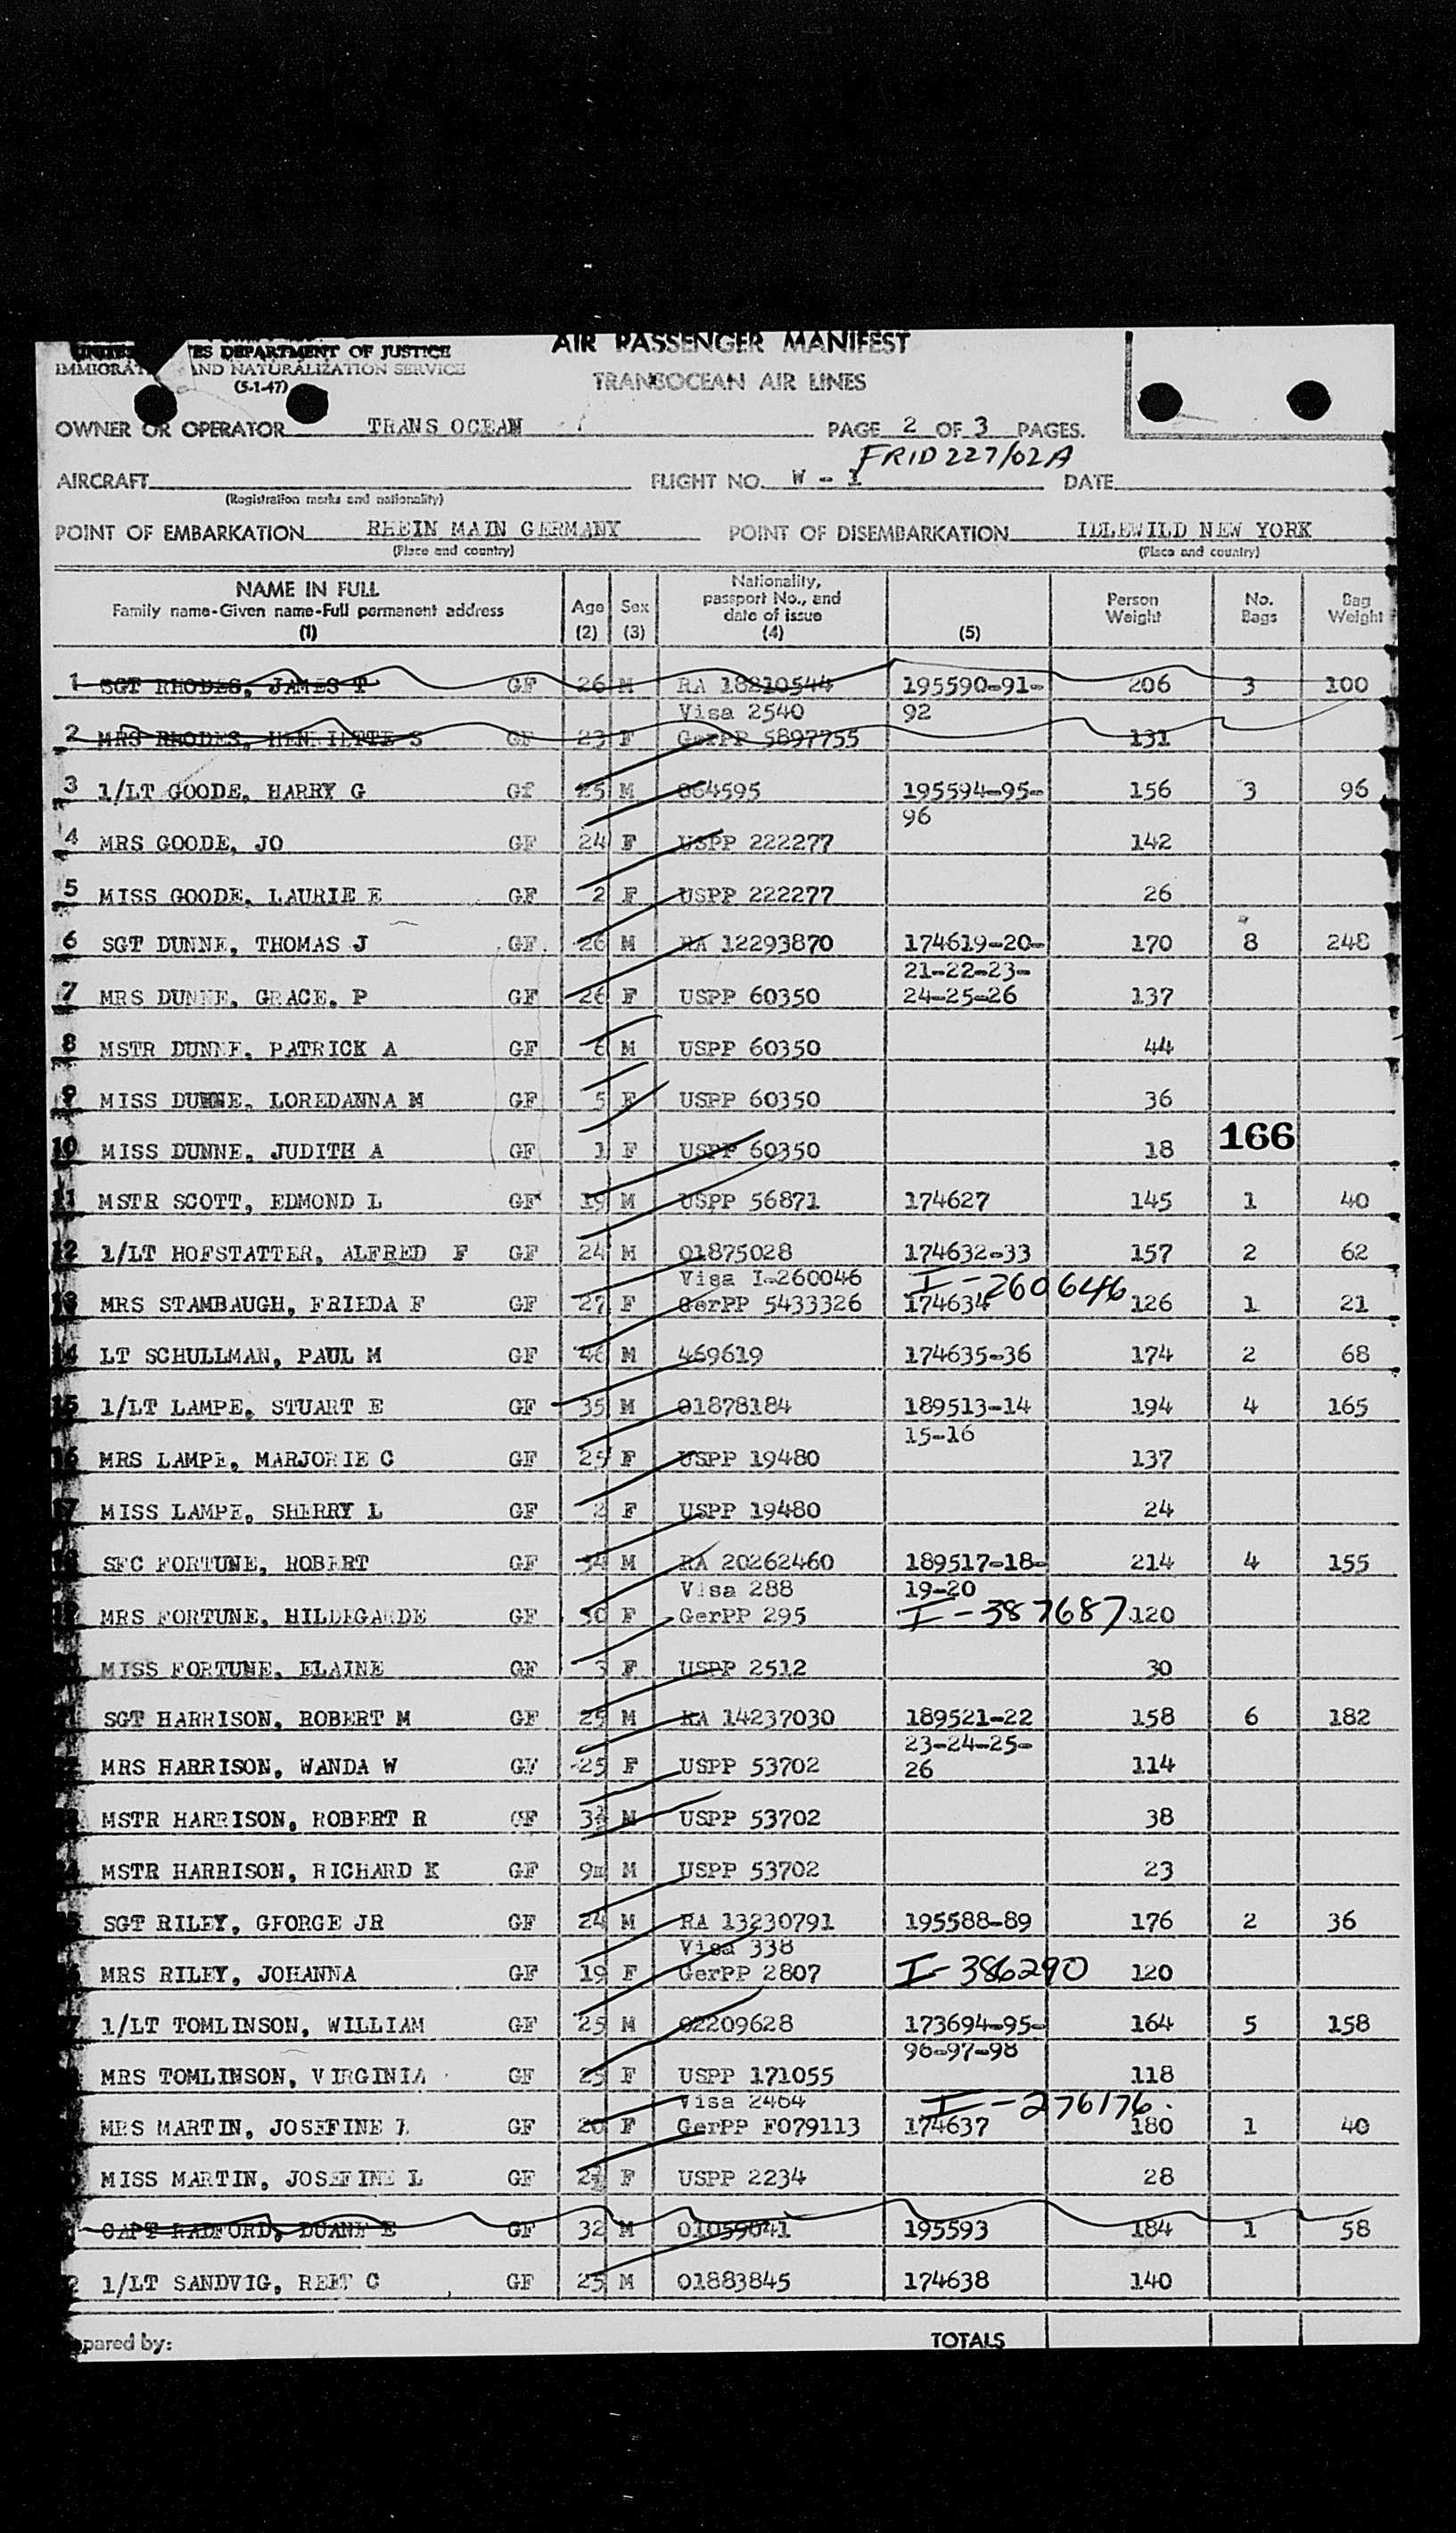 ES DEPARTMENT OF JUSTICE
IMMIGRAT AND NATURALIZATION SERVICE
(5-1-47)
AIR PASSENGER MANIFEST
TRANSOCEAN AIR LINES
OWNER OR OPERATOR TRANS OCEAN PAGE 2 OF 3 PAGES.
FRID 227/02A
AIRCRAFT FLIGHT NO. W - 1 DATE
(Registration marks and nationality)
POINT OF EMBARKATION RHEIN MAIN GERMANY POINT OF DISEMBARKATION IDLEWILD NEW YORK
(Place and country) (Place and country)
NAME IN FULL
Family name-Given name-Full permanent address
(1)
Age
(2)
Sex
(3)
Nationality,
passport No., and
date of issue
(4)
(5)
Person
Weight
No.
Bags
Bag
Weight
1 SGT RHODES, JAMES T GF 26 M RA 18210544 195590-91- 206 3 100
Visa 2540 92
2 MRS RHODES, HENRIETTE S GF 23 F GerPP 5897755 131
3 1/LT GOODE, HARRY G Gf 25 M 864595 195594-95- 156 3 96
96
4 MRS GOODE, JO GF 24 F USPP 222277 142
5 MISS GOODE, LAURIE E GF 2 F USPP 222277 26
6 SGT DUNNE, THOMAS J GF 26 M RA 12293870 174619-20- 170 8 248
21-22-23-
7 MRS DUNNE, GRACE, P GF 26 F USPP 60350 24-25-26 137
8 MSTR DUNNE, PATRICK A GF 6 M USPP 60350 44
9 MISS DUNNE, LOREDANNA M GF 5 F USPP 60350 36
166
10 MISS DUNNE, JUDITH A GF 1 F USPP 60350 18
11 MSTR SCOTT, EDMOND L GF 19 M USPP 56871 174627 145 1 40
12 1/LT HOFSTATTER, ALFRED F GF 24 M 01875028 174632-33 157 2 62
Visa I-260046 I-260646
13 MRS STAMBAUGH, FRIEDA F GF 27 F GerPP 5433326 174634 126 1 21
14 LT SCHULLMAN, PAUL M GF 46 M 469619 174635-36 174 2 68
15 1/LT LAMPE, STUART E GF 35 M 01878184 189513-14 194 4 165
15-16
16 MRS LAMPE, MARJORIE C GF 25 F USPP 19480 137
17 MISS LAMPE, SHERRY L GF 2 F USPP 19480 24
SFC FORTUNE, ROBERT GF 34 M RA 20262460 189517-18- 214 4 155
Visa 288 19-20
MRS FORTUNE, HILDEGARDE GF 30 F GerPP 295 I-387687 120
MISS FORTUNE, ELAINE GF 3 F USPP 2512 30
SGT HARRISON, ROBERT M GF 25 M RA 14237030 189521-22 158 6 182
23-24-25-
MRS HARRISON, WANDA W GF 25 F USPP 53702 26 114
MSTR HARRISON, ROBERT R GF 3½ M USPP 53702 38
MSTR HARRISON, RICHARD K GF 9m M USPP 53702 23
SGT RILEY, GEORGE JR GF 24 M RA 13230791 195588-89 176 2 36
Visa 338
MRS RILEY, JOHANNA GF 19 F GerPP 2807 I-386290 120
1/LT TOMLINSON, WILLIAM GF 25 M 02209628 173694-95- 164 5 158
96-97-98
MRS TOMLINSON, VIRGINIA GF 25 F USPP 171055 118
Visa 2464 I-276176.
MRS MARTIN, JOSEFINE GF 20 F GerPP F079113 174637 180 1 40
MISS MARTIN, JOSEFINE L GF 2½ F USPP 2234 28
CAPT RADFORD, DUANE E GF 32 M 01059041 195593 184 1 58
2 1/LT SANDVIG, REET C GF 25 M 01883845 174638 140
pared by: TOTALS